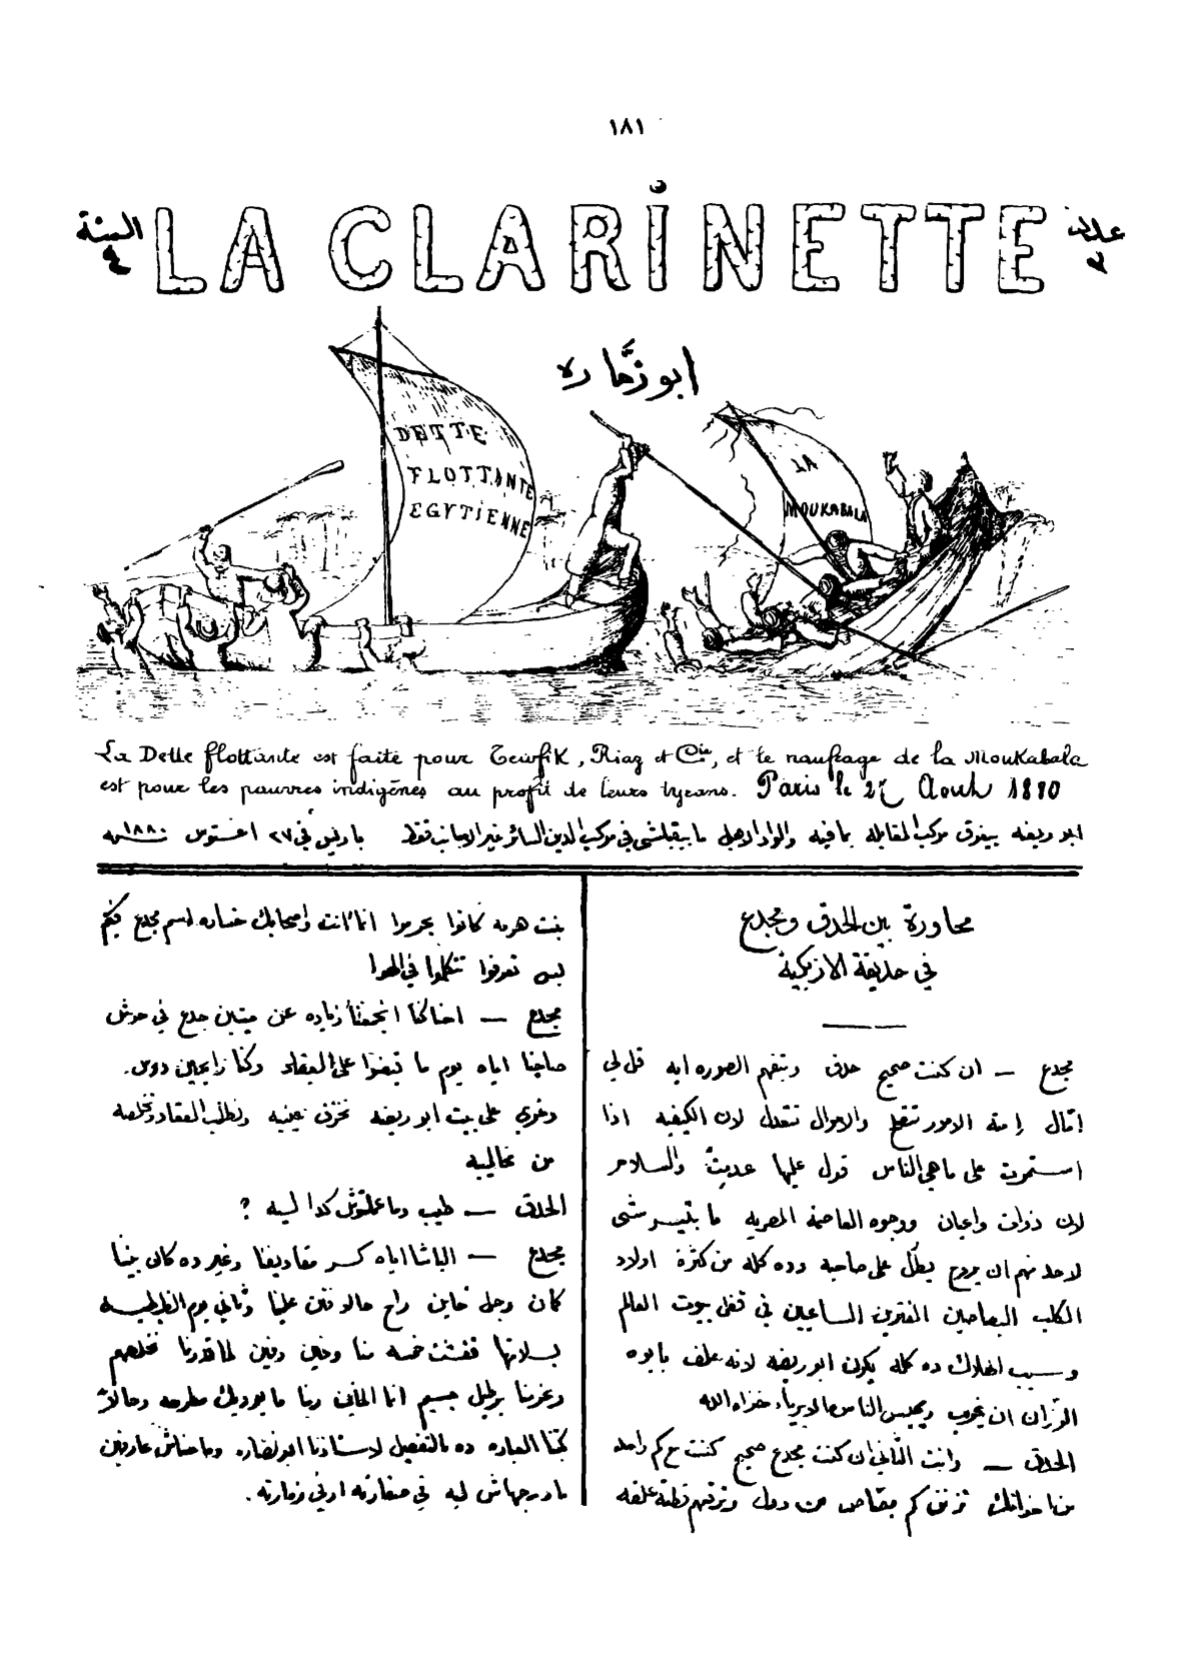 ١٨١
السنة
٤
LA CLARINETTE
عدد
٣
ابو زمّاره
DETTE
FLOTTANTE
EGYTIENNE
LA
MOUKABALA
La Dette flottante est faite pour Tewfik, Riaz et Cie, et le naufrage de la Moukabala
est pour les pauvres indigènes au profit de leurs tyrans. Paris le 27 Aout 1880
ابو ريضه بيغرق مركب المقابله بما فيه والولاد الاهلي ما بيقبلشي في مركب الدين السائر غير الاجانب فقط باريس في ٢٧ اغستوس سنة ١٨٨٠
محاورة بين الحدق ومجدع
في حديقة الازبكية
مجدع — ان كنت صحيح حدق وبتفهم الصوره ايه قل لي
اٍمتال رامة الامور تنقلع والاحوال تتعدل لان الكيفيه اذا
استمرت على ما هي الناس قول عليها عديت والسلام
لان ذوات واعيان ووجوه العاصمة المصريه ما بتيسر شى
لاحد منهم ان يروح يطل على صاحبه وده كله من كثرة اولاد
الكلب البصاصين المفترين الساعيين في قفل بيوت العالم
وسبب الهلاك ده كله يكون ابو ريضه لانه علف بابوه
ان يخرب ويحبس الناس مالا برياء جزاه الله
الحدق — وانت الثاني ان كنت مجدع صحيح كنت خدلكم واحد
من اخدانك كم بقاص من دول
بنت هرمه كانوا يحرموا انما انت واصحابك خساره اسم مجدع فيكم
بس تعرفوا تتكلموا في الهوا
مجدع — احنا كنا اتجمعنا زياده عن ميتين جدع في حوش
صاحبنا اياه يوم ما قبضوا على العقاد وكنا رايحين دوس
دغري على بيت ابو ريضه نخزق عينيه ونطلب العقاد ونخلصه
من مخالبيه
الحدق — طيب وما عملتوش كدا ليه ؟
مجدع — الباشا اياه كسر مقاديفنا وغير ده كان بينا
كان رجل خاين راح حالا فتن علينا وثاني يوم الظبطيه
بسلامتها قفشت خمسه منا وحين وفين لما قدرنا نخلصهم
وغرمنا برطيل جسيم انما الخاين ربنا ما يوريك مطرحه وحالا
كتبنا العباره ده بالتفصيل لاستاذنا ابو نضاره وما حناش عارفين
ما درجهاش ليه في صفارته او في زمارته.